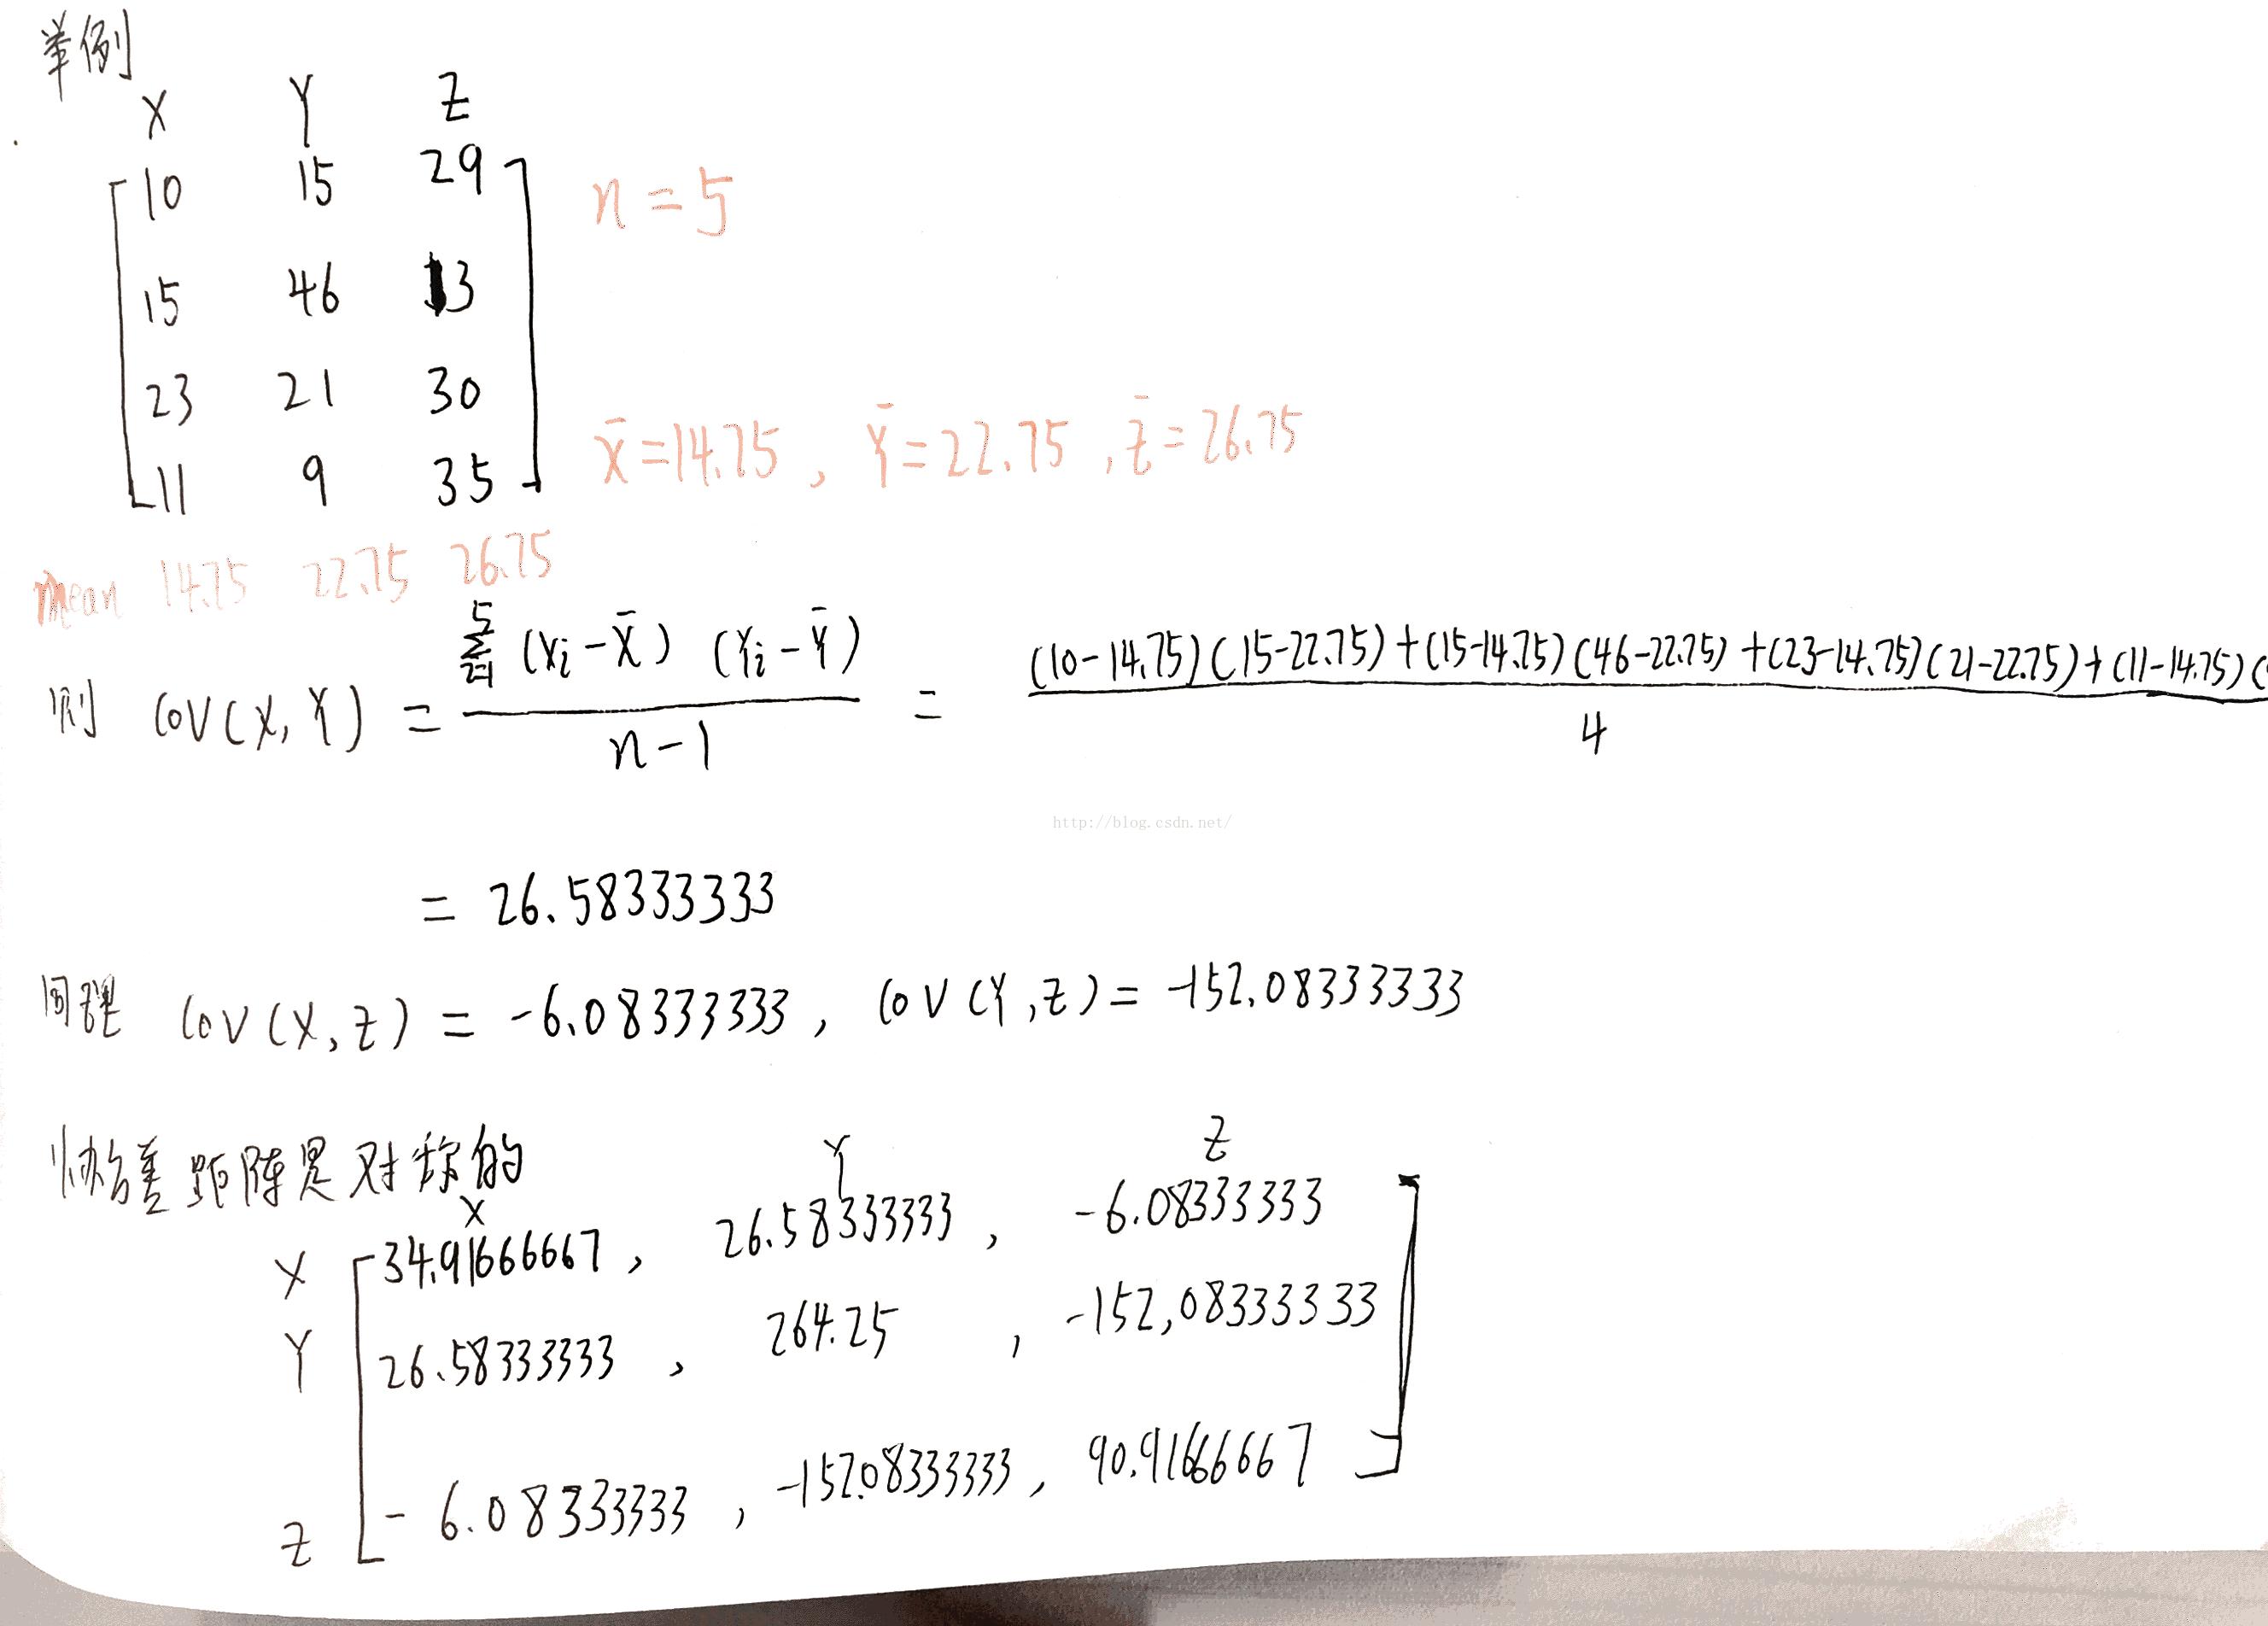 举例
X Y Z
10 15 29
n = 5
15 46 13
23 21 30
x̄ = 14.75 , Ȳ = 22.75 , z̄ = 26.75
11 9 35
mean 14.75 22.75 26.75
则 COV(X, Y) = \frac{\sum_{i=1}^{5} (Xi - X̄) (Yi - Ȳ)}{n-1} = \frac{(10-14.75)(15-22.75)+(15-14.75)(46-22.75)+(23-14.75)(21-22.75)+(11-14.75)(}{4}
http://blog.csdn.net/
= 26.58333333
同理 COV(X,Z) = -6.08333333 , COV(Y,Z) = -152.08333333
协方差距阵是对称的
X Y Z
X 34.91666667 , 26.58333333 , -6.08333333
Y 26.58333333 , 264.25 , -152,08333333
Z -6.08333333 , -152.08333333 , 90.91666667